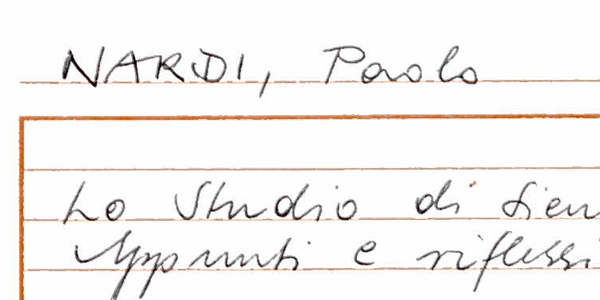 NARDI, Paolo
Lo Studio di Sien
Appunti e riflessi